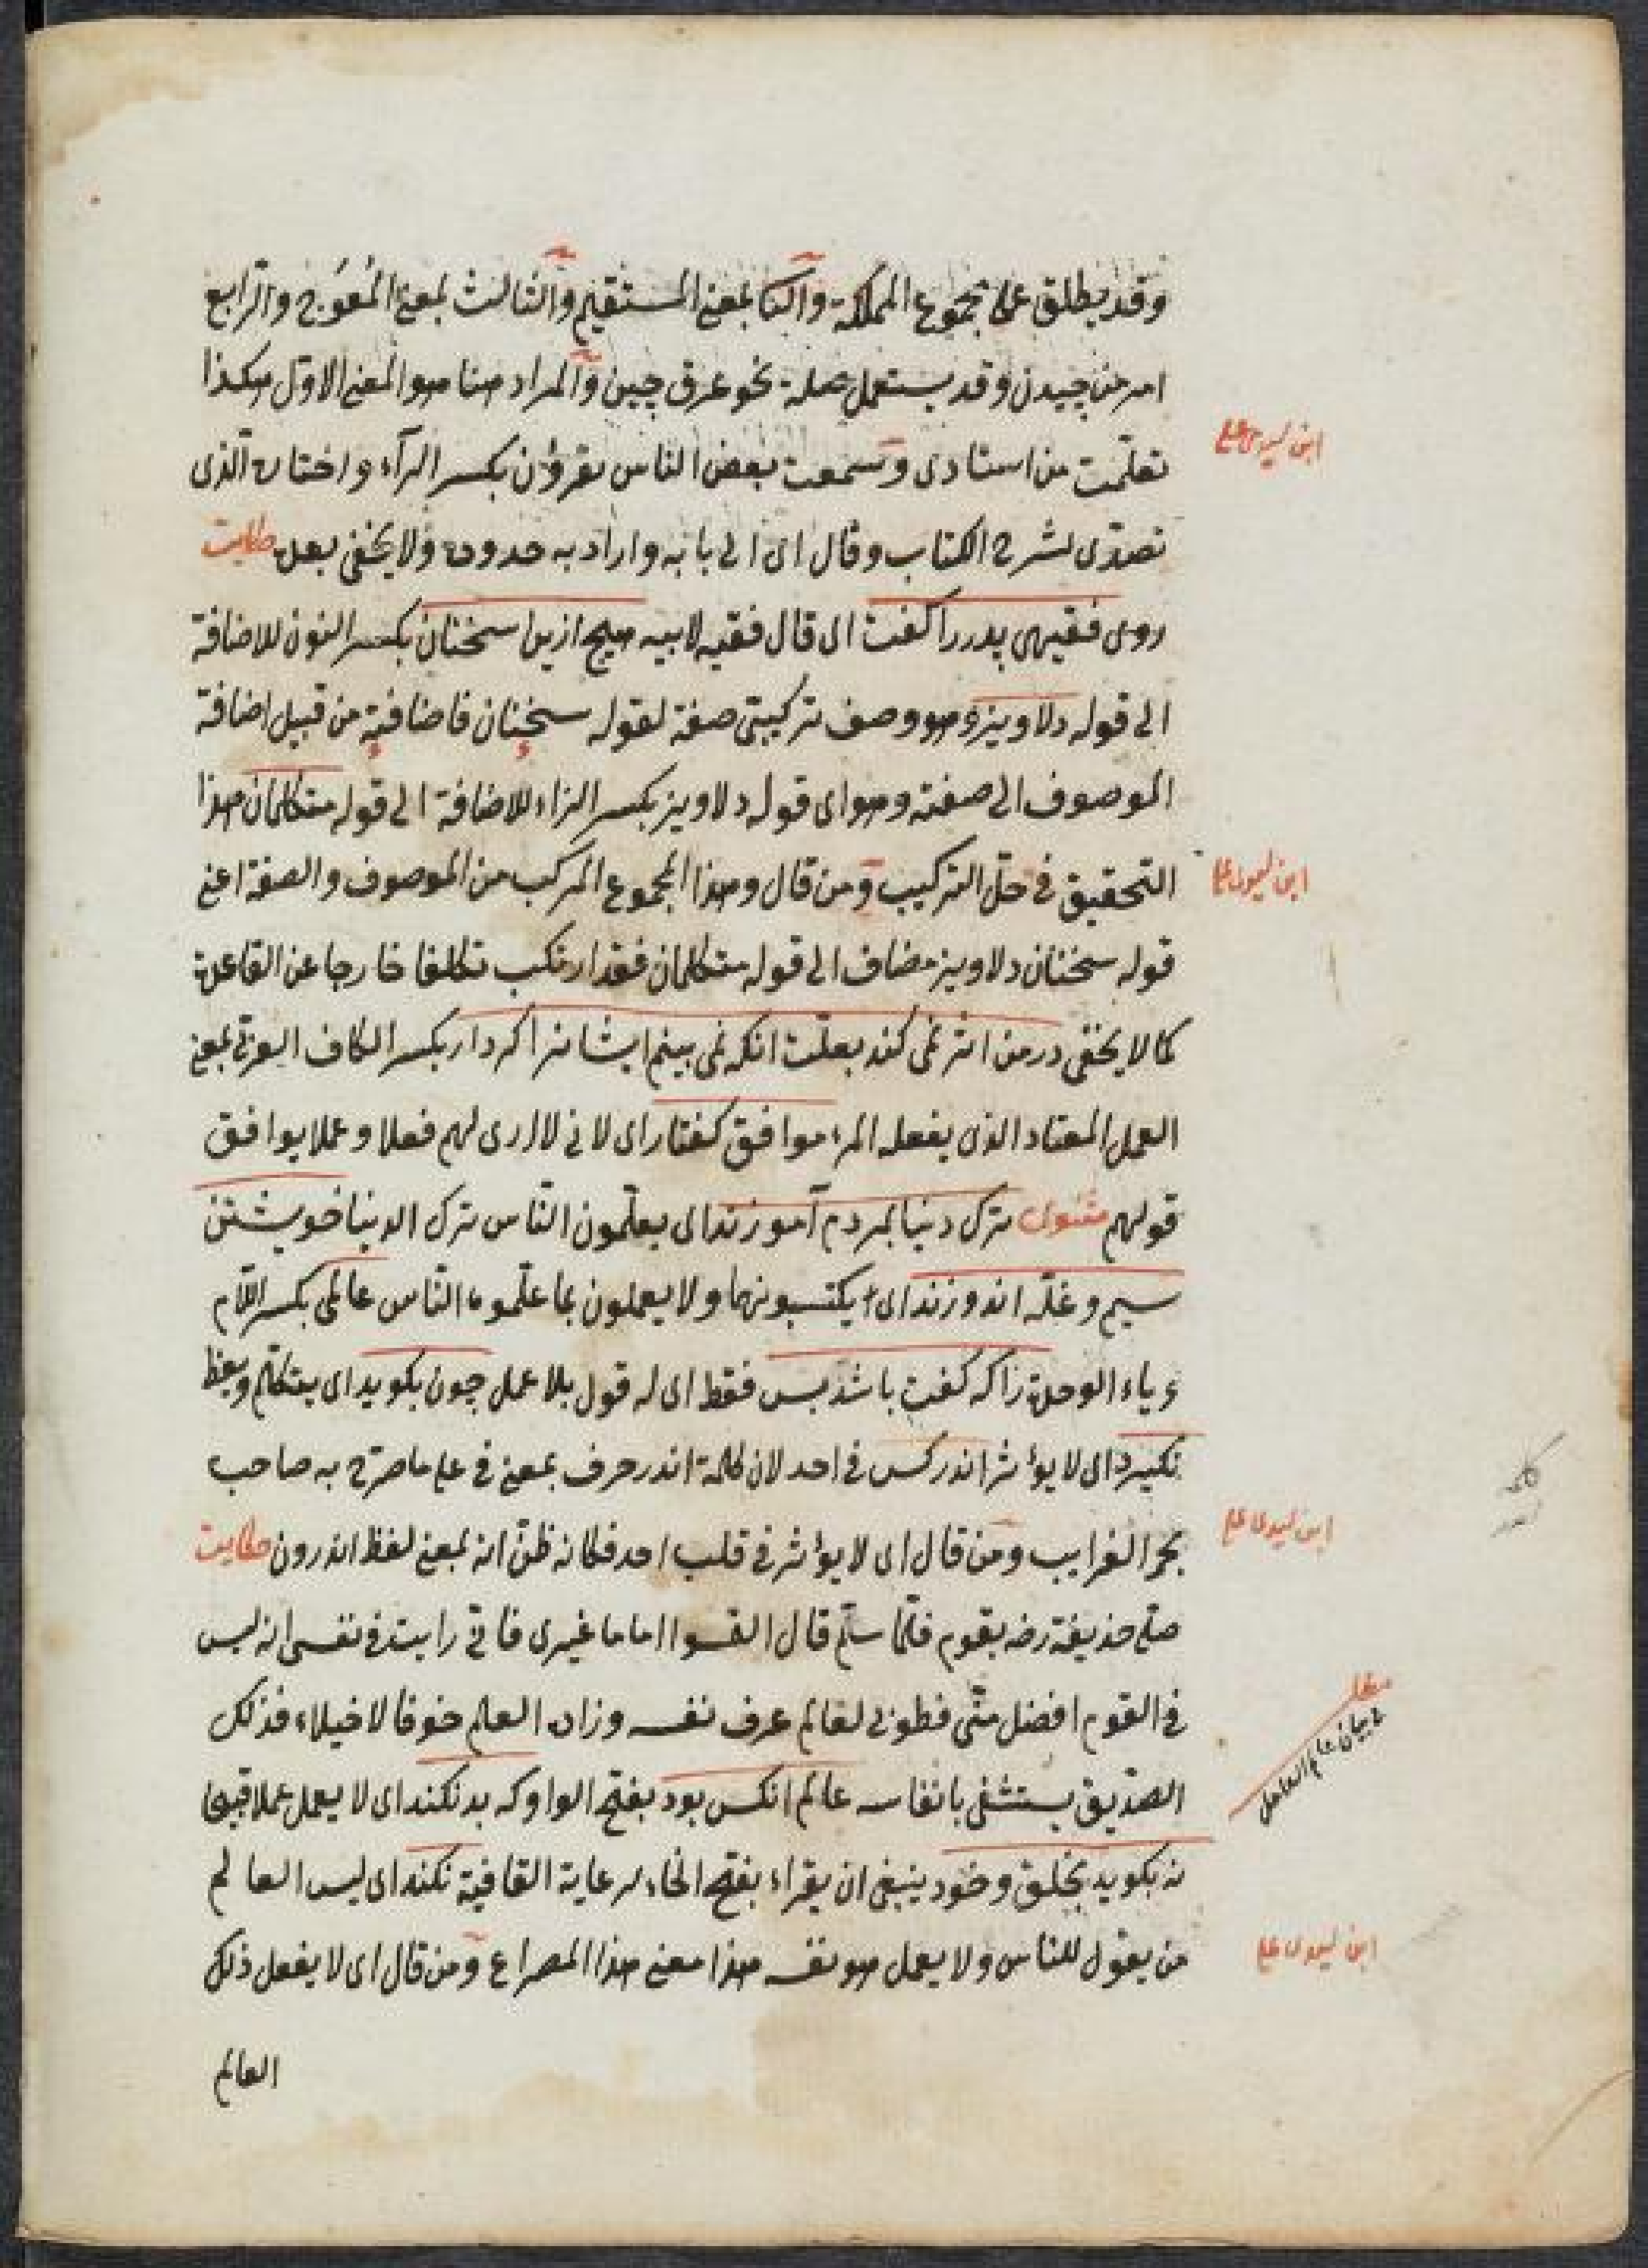 وقد يطلق على مجموع المملكة والثا بمعنى المستقيم والثالث بمعنى المُعوَج والرابع
امر من چيدن وقد يستعمل صلة نحو عرق چين والمراد هنا هو المعنى الاول هكذا
تعلّمت من استادى وسمعت بعض الناس يقرؤن بكسر الرآء واختاره الّذى
تصدّى لشرح الكتاب وقال اى الى بابه واراد به حدوده ولا يخفى بعده حكايت
روى فقيهى پدررا كفت اى قال فقيه لابيه هيچ ازين سخنان بكسر النون للاضافة
الى قوله دلاويز وهو وصف تركيبى صفة لقوله سخنان فاضافته من قبيل اضافة
الموصوف الى صفته وهو اى قوله دلاويز بكسر الزاء للاضافة الى قوله متكلمان هذا
التحقيق فى حلّ التركيب ومن قال وهذا المجموع المركب من الموصوف والصفة اعنى
قوله سخنان دلاويز مضاف الى قوله متكلمان فقد ارتكب تكلفا خارجا عن القاعدة
كما لا يخفى در من اثر نمى كند بعلّت انكه نمى بينم ايشانرا كردار بكسر الكاف العربى بمعنى
العمل المعتاد الذى يفعله المرء موافق كفتار اى لانى لا ارى لهم فعلا وعملا يوافق
قولهم مثنوى ترك دنيا بمردم آموزند اى يعلّمون النّاس ترك الدنيا خويشتن
سيم وغلّه اندوزند اى يكتسبونها ولا يعملون بما علّموه النّاس عالمى بكسر اللّام
وياء الوحدة راكه كفت باشد بس فقط اى له قول بلا عمل چون بكويد اى يتكلّم ويعظ
نكيرد اى لا يؤثر اندر كس فى احد لان كلمة اندر حرف بمعنى فى على ما صرّح به صاحب
بحر الغرايب ومن قال اى لا يؤثر فى قلب احد فكانه ظنّ انه بمعنى لفظ اندرون حكايت
صلّى حذيفة رضه بقوم فلمّا سلّم قال التمسوا اماما غيرى فانّى رايت فى نفسى انه ليس
فى القوم افضل منّى فطوبى لعالم عرف نفسه وزاده العلم خوفا لا خيلاء فذلك
الصدّيق يستشفى بانفاسه عالم انكس بود بفتح الواو كه بد نكند اى لا يعمل عملا قبيحا
نه بكويد بخلق وخود ينبغى ان يقراء بفتح الخاء لرعاية القافية نكند اى ليس العالم
من يقول للناس ولا يعمل هو نفسه هذا معنى هذا المصراع ومن قال اى لا يفعل ذلك
العالم
ابن سيدى على
ابن سيدى على
كلمه
اندر
ابن سيدى على
مطلب
فى بيان عالم العامل
ابن سيدى على